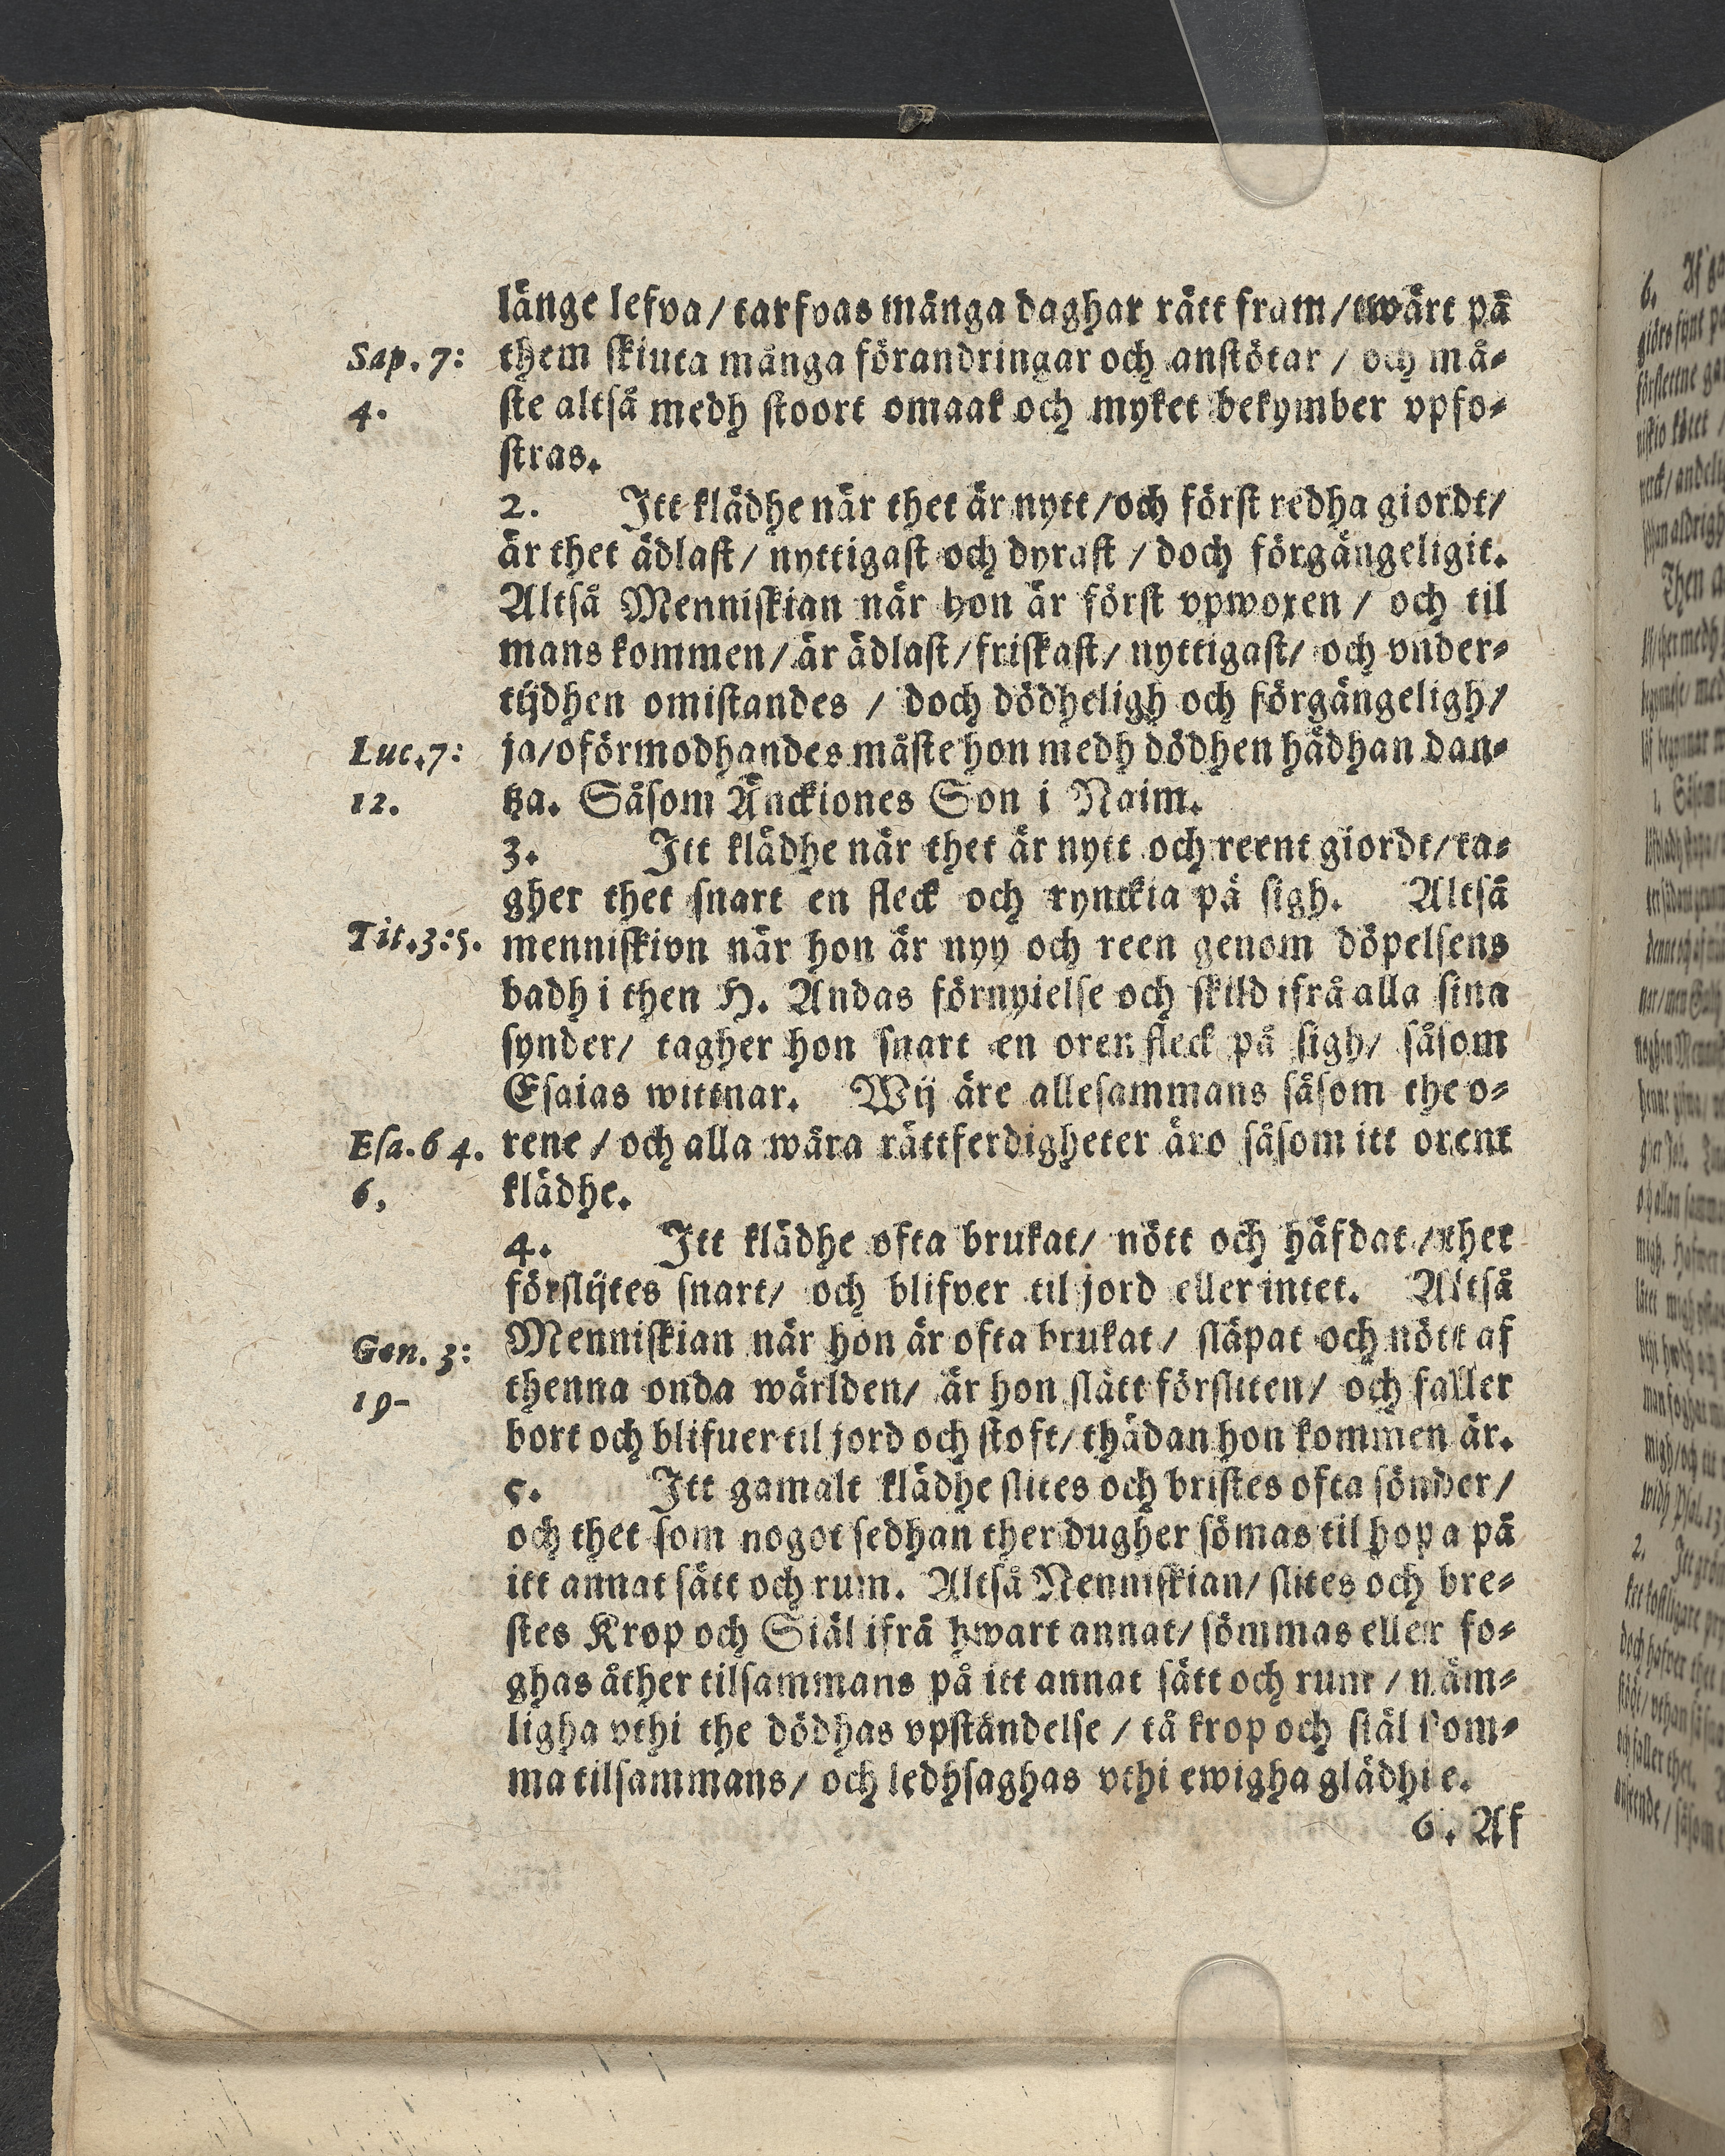 länge lefva / tarfvas många daghar rätt fram / twärt på
Sap. 7: them skiuta många förandringar och anstötar / och må-
4. ste altså medh stoort omaak och myket bekymber vpfo-
stras.
2. Itt klädhe när thet är nytt / och först redha giordt /
är thet ädlast / nyttigast och dyrast / doch förgängeligit.
Altså Menniskian när hon är först vpwoxen / och til
mans kommen / är ädlast / friskast / nyttigast / och vnder-
tijdhen omistandes / doch dödheligh och förgängeligh /
Luc. 7: ja / oförmodhandes måste hon medh dödhen hädhan dan-
12. tza. Såsom Änckiones Son i Naim.
3. Itt klädhe när thet är nytt och reent giordt / ta-
gher thet snart en fleck och rynckia på sigh. Altså
Tit. 3: 5. menniskivn när hon är nyy och reen genom döpelsens
badh i then H. Andas förnyielse och skild ifrå alla sina
synder / tagher hon snart en oren fleck på sigh / såsom
Esaias wittnar. Wij äre allesammans såsom the o-
Esa. 64. rene / och alla wåra rättferdigheter äro såsom itt orent
6, klädhe.
4. Itt klädhe ofta brukat / nött och häfdat / thet
förslijtes snart / och blifver til jord eller intet. Altså
Gen. 3: Menniskian när hon är ofta brukat / släpat och nött af
19- thenna onda wärlden / är hon slätt försliten / och faller
bort och blifuer til jord och stoft / thädan hon kommen är.
5. Itt gamalt klädhe slites och bristes ofta sönder /
och thet som nogot sedhan ther dugher sömas til hopa på
itt annat sätt och rum. Altså Nenniskian / slites och bre-
stes Krop och Siäl ifrå hwart annat / sömmas eller fo-
ghas åther tilsammans på itt annat sätt och rum / näm-
ligha vthi the dödhas vpståndelse / tå krop och siäl kom-
ma tilsammans / och ledhsaghas vthi ewigha glädhie.
6. Af